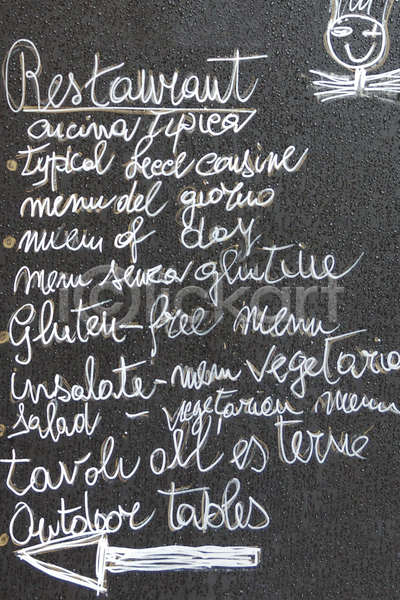 Restaurant
cucina tipica
typical feed cousine
menu del giorno
menu of day
menu senza ghlutine
Gluten-free menu
insalate-menu vegetaria
salad - vegetarian menu
tavoli all esterne
Outdoor tables